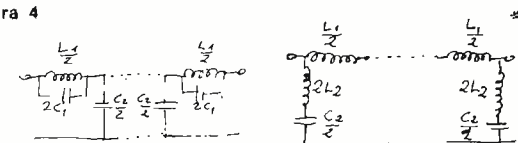 ra 4
L1/2
L1/2
2C1
C2/2
C2/2
2C1
L1/2
L1/2
2L2
2L2
C2/2
C2/2